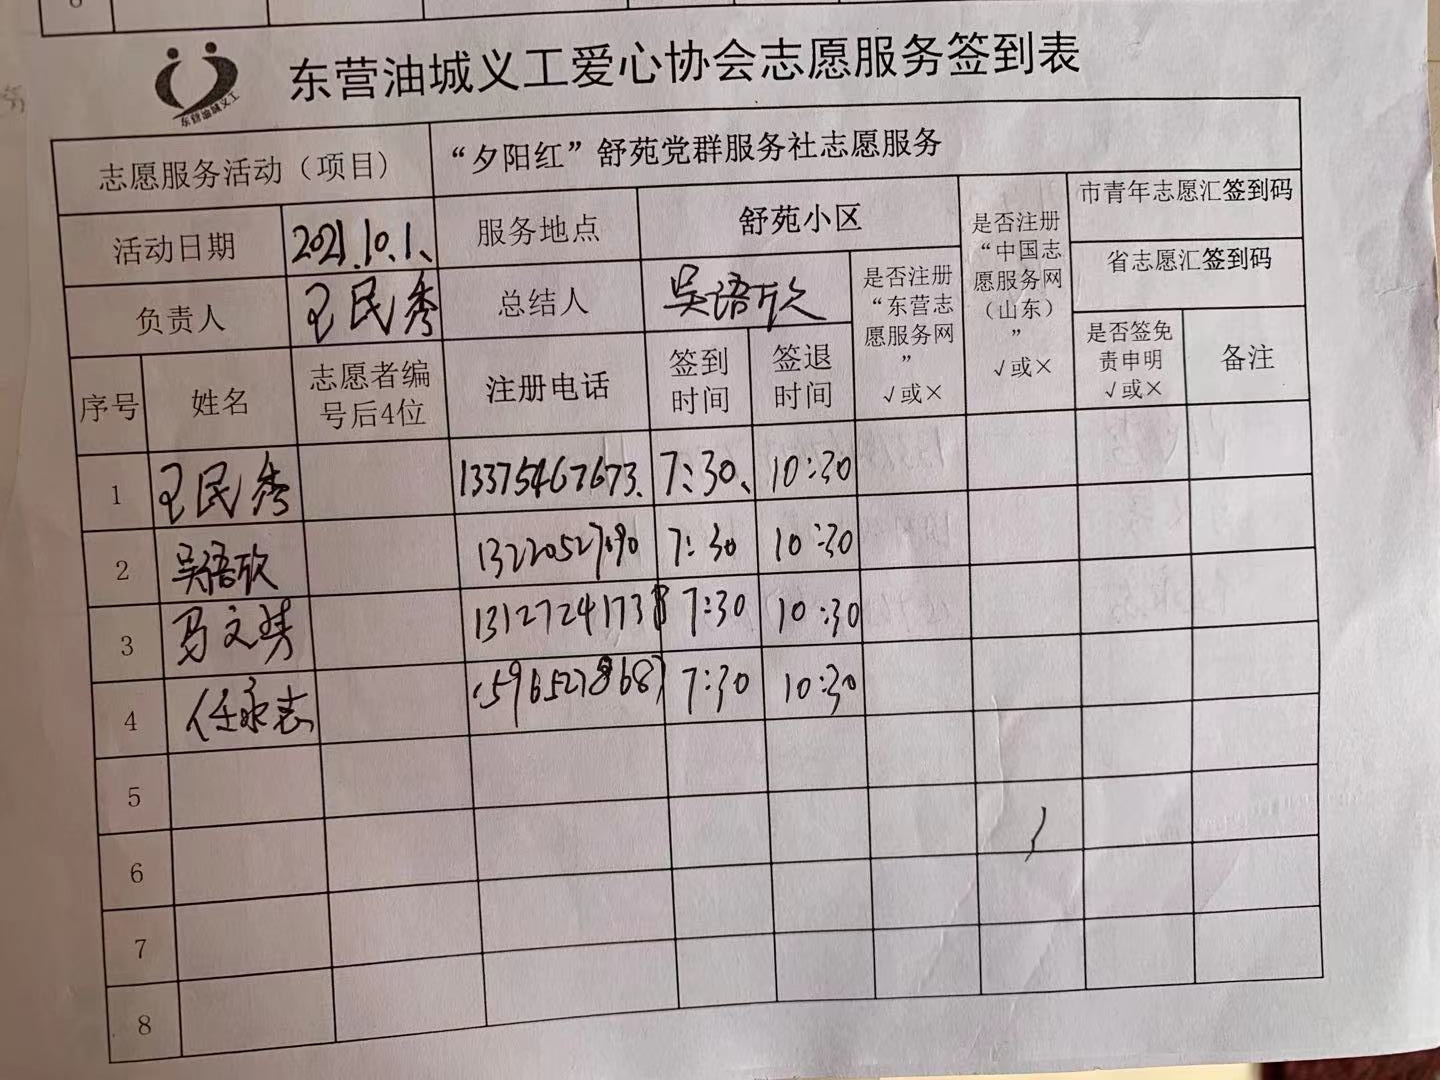 东营油城义工
东营油城义工爱心协会志愿服务签到表
志愿服务活动（项目） “夕阳红”舒苑党群服务社志愿服务
活动日期 2021.10.1、 服务地点 舒苑小区 是否注册“中国志愿服务网（山东）” √或× 市青年志愿汇签到码
省志愿汇签到码
负责人 王民秀 总结人 吴语欣 是否注册“东营志愿服务网” √或×
序号 姓名 志愿者编号后4位 注册电话 签到时间 签退时间 是否签免责申明 √或× 备注
1 王民秀 13375467673、 7:30、 10:30
2 吴语欣 7:30 10:30
3 马文 7:30 10:30
4 任永志 7:30 10:30
5
6
7
8